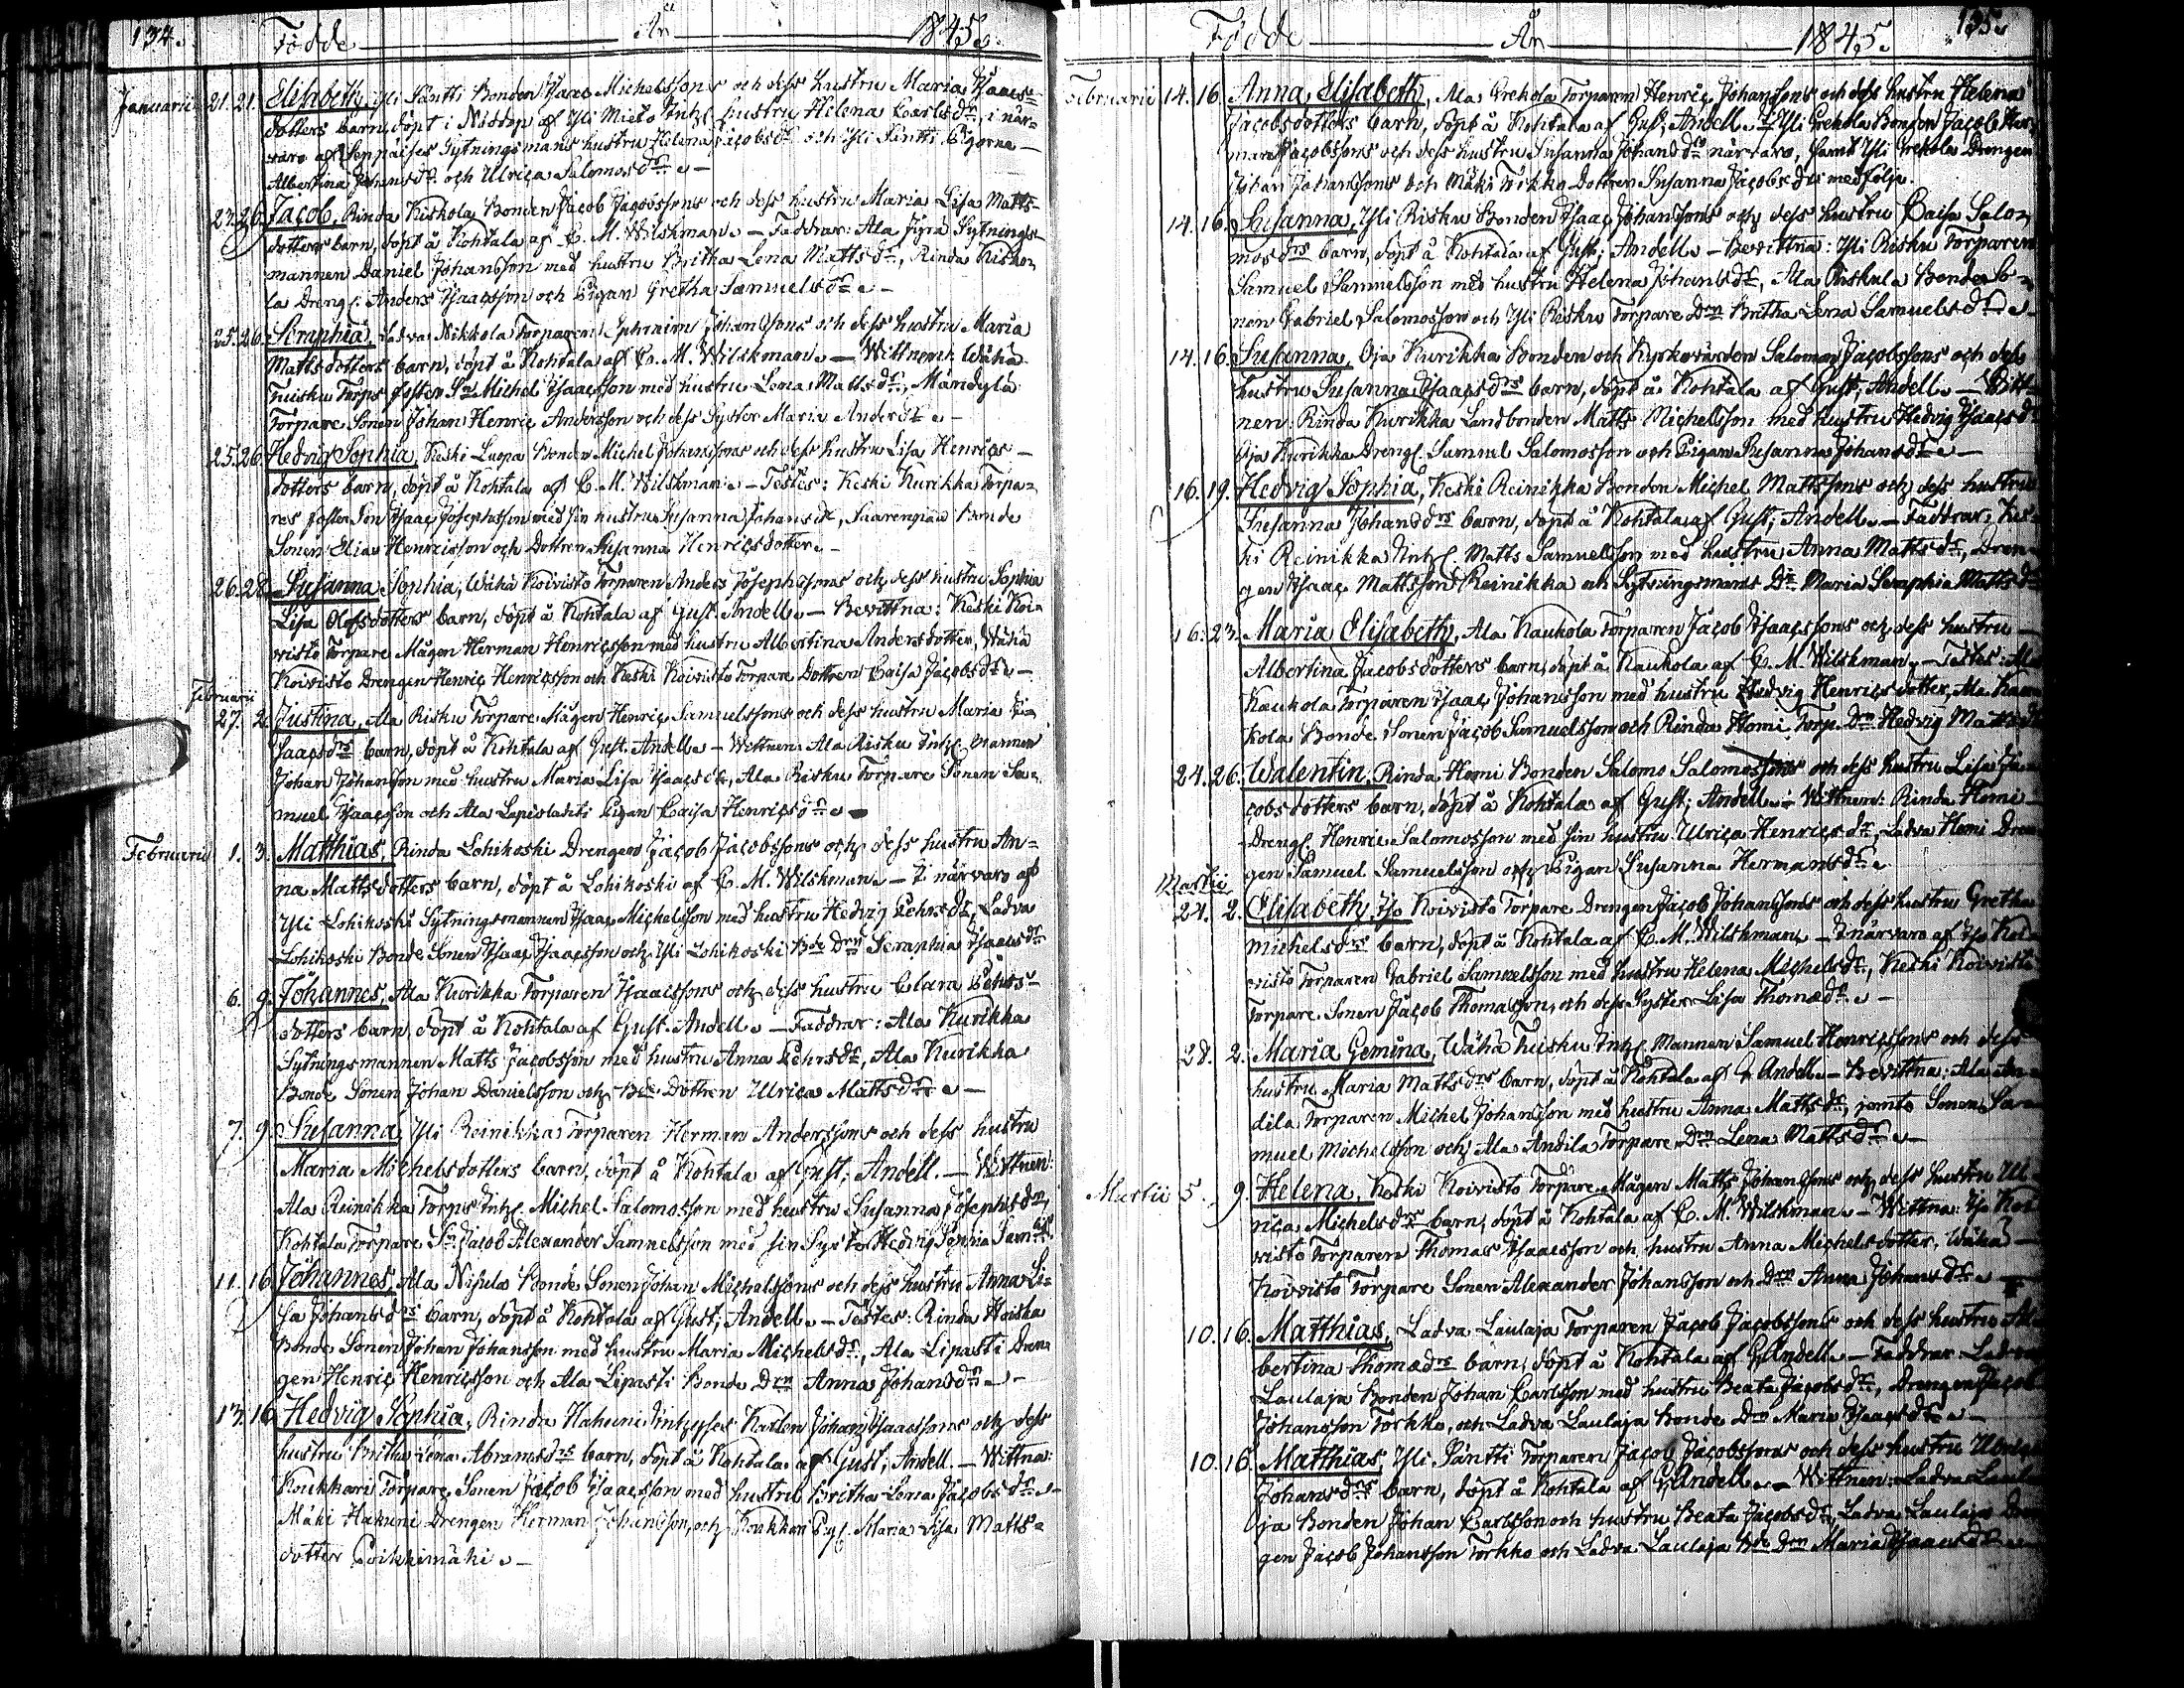 134. Födde År 1845.
Januarii 21. 21. Elisabeth, Yli Päntti Bonden Isaac Michelssons och dess hustru Maria Isaacs-
dotters barn, döpt i Nöddop af Yli Mieto Inhs. hustru Helena Carlsdr, i när-
varo af Seppäises Sytningsmans hustru Helena Jacobsdr och Yli Päntti Pigorna
Albertina Johansdr och Ulrica Salomosdr.
23. 26. Jacob, Rinda Kiskola Bonden Jacob Jacobssons och dess hustru Maria Lisa Matts-
dotters barn, döpt å Kohtala af C. M. Wilskman. — Faddrar: Ala Jyrä Sytnings-
mannen Daniel Johansson med hustru Britha Lena Mattsdr, Rinda Kisko-
la Drengs. Anders Isaacsson och Pigan Gretha Samuelsdr. —
25. 26. Seraphia, Ladva Nikkola Torparen Ephraim Johanssons och dess hustru Maria
Mattsdotters barn, döpt å Kohtala af C. M. Wilskman. — Wittnen: Wähä
Tuisku Torps foster Sn Michel Isaacsson med hustru Lena Mattsdr, Mändylä
Torpare Sonen Johan Henric Andersson och dess Syster Maria Andersdr. —
25. 26. Hedvig Sophia, Keski Luopa Bonden Michel Johanssons och dess hustru Lisa Henrics-
dotters barn, döpt å Kohtala af C. M. Wilskman. — Testes: Keski Kurikka Torpa-
res foster Son Isaac Josephsson med sin hustru Susanna Johansdr, Saarenpää Bonde
Sonen Elias Henricsson och Dottren Susanna Henricsdotter. —
26. 28. Susanna Sophia, Wähä Koivisto Torparen Anders Josephssons och dess hustru Sophia
Lisa Olofsdotters barn, döpt å Kohtala af Gust. Andell. — Bevittna: Keski Koi-
visto Torpare Mågen Herman Henricsson med hustru Albertina Andersdotter, Wähä
Koivisto Drengen Henric Henricsson och Keski Koivisto Torpare Dottren Caisa Jacobsdr. —
Februarii
27. 2. Justina, Ala Risku Torpare Mågen Henric Samuelssons och dess hustru Maria I-
saacsdrs barn, döpt å Kohtala af Gust. Andell. — Wittnen: Ala Risku Inhs. Mannen
Johan Johansson med hustru Maria Lisa Isaacsdr, Ala Risku Torpare Sonen Sa-
muel Isaacsson och Ala Lepistaditi Pigan Caisa Henricsdr. —
Februarii 1. 3. Matthias, Rinda Lohikoski Drengen Jacob Jacobssons och dess hustru An-
na Mattsdotters barn, döpt å Lohikoski af C. M. Wilskman. — I närvaro af
Yli Lohikoski Sytningsmannen Isaac Michelsson med hustru Hedvig Pehrsdr, Ladva
Lohikoski Bonde Sonen Isaac Isaacsson och Yli Lohikoski Bde Drn Seraphia Isaacsdr
6. 9. Johannes, Ala Kurikka Torparen Isaacssons och dess hustru Clara Pehrs-
dotters barn, döpt å Kohtala af Gust. Andell. — Faddrar: Ala Kurikka
Sytningsmannen Matts Jacobsson med hustru Anna Pehrsdr, Ala Kurikka
Bonde Sonen Johan Danielsson och Bde Dottren Ulrica Mattsdr. —
7. 9. Susanna, Yli Reinikka Torparen Herman Anderssons och dess hustru
Maria Michelsdotters barn, döpt å Kohtala af Gust. Andell. — Wittnen:
Ala Reinikka Torps Inhs. Michel Salomosson med hustru Susanna Josephsdr,
Kohtala Torpare Sn Jacob Alexander Samuelsson med sin Syster Hedvig Sophia Sam.dr
11. 16. Johannes, Ala Nisula Bonde Sonen Johan Michelssons och dess hustru Anna Li-
sa Johansdrs barn, döpt å Kohtala af Gust. Andell. — Testes: Rinda Hoiska
Bonde Sonen Johan Johansson med hustru Maria Michelsdr, Ala Lipasti Dren-
gen Henric Henricsson och Ala Lipasti Bonde Drn Anna Johansdr. —
13. 16. Hedvig Sophia, Rinda Hakuni Inhyses Karlen Johan Isaacssons och dess
hustru Britha Lena Abramsdrs barn, döpt å Kohtala af Gust. Andell. — Wittna:
Koukkari Torpare Sonen Jacob Isaacsson med hustru Britha Lena Jacobsdr. —
Mäki Hakuni Drengen Herman Johansson, och Koukkari Pig. Maria Lisa Matts-
dotter Poikkimäki. —
Födde År 1845. 135.
Februarii 14. 16. Anna Elisabeth, Ala Grekola Torparen Henric Johanssons och dess hustru Helena
Jacobsdotters barn, döpt å Kohtala af Gust. Andell. I Yli Grekola Bonden Jacob Her-
man Jacobssons och dess hustru Susanna Johansdrs närvaro, samt Yli Grekola Drengen
Johan Johanssons och Mäki Torkko Dottren Susanna Jacobsdrs medfölje.
14. 16. Susanna, Yli Risku Bonden Isaac Johanssons och dess hustru Caisa Salo-
mosdrs barn, döpt å Kohtala af Gust. Andell. — Bevittna: Yli Risku Torparen
Samuel Samuelsson med hustru Helena Johansdr, Ala Pitkula Bonde So-
nen Gabriel Salomosson och Yli Risku Torpare Drn Britha Lena Samuelsdr. —
14. 16. Susanna, Oja Kurikka Bonden och Kyrkovärden Salomon Jacobssons och dess
hustru Susanna Isaacsdrs barn, döpt å Kohtala af Gust. Andell. — Witt-
nen: Rinda Kurikka Landbonden Matts Michelsson med hustru Hedvig Isaacsdr
Oja Kurikka Drengs. Samuel Salomosson och Pigan Susanna Johansdr. —
16. 19. Hedvig Sophia, Keski Reinikka Bonden Michel Mattssons och dess hustru
Susanna Johansdrs barn, döpt å Kohtala af Gust. Andell. — Faddrar: Kes-
ki Reinikka Inhs. Matts Samuelsson med hustru Anna Mattsdr, Dren-
gen Isaac Mattsson Reinikka och Sytningsmans Dr Maria Seraphia Mattsdr
16. 23. Maria Elisabeth, Ala Kaukola Torparen Jacob Isaacssons och dess hustru
Albertina Jacobsdotters barn, döpt å Kaukola af C. M. Wilskman. — Testes: Ala
Kaukola Torparen Isaac Johansson med hustru Hedvig Henricsdotter, Ala Kau-
kola Bonde Sonen Jacob Samuelsson och Rinda Homi Torp. Drn Hedvig Mattsdr
24. 26. Walentin, Rinda Homi Bonden Salomo Salomossons och dess hustru Lisa Ja-
cobsdotters barn, döpt å Kohtala af Gust. Andell. — Wittnen: Rinda Homi
Drengs. Henric Salomosson med sin hustru Ulrica Henricsdr, Ladva Homi Dren-
gen Samuel Samuelsson och Pigan Susanna Hermansdr.
Martii
24. 2. Elisabeth, Iso Koivisto Torpare Drengen Jacob Johanssons och dess hustru Gretha
Michelsdrs barn, döpt å Kohtala af C. M. Wilskman. — I närvaro af Iso Koi-
visto Torparen Gabriel Samuelsson med hustru Helena Michelsdr, Keski Koivisto
Torpare Sonen Jacob Thomasson, och dess Syster Lisa Thomædr. —
28. 2. Maria Gemina, Wähä Tuisku Inhs. Mannen Samuel Henricssons och dess
hustru Maria Mattsdrs barn, döpt å Kohtala af G. Andell. — Bevittna: Ala An-
dila Torparen Michel Johansson med hustru Anna Mattsdr, jemte Sonen Sa-
muel Michelsson och Ala Andila Torpare Drn Lena Mattsdr. —
Martii 5. 9. Helena, Keski Koivisto Torpare Mågen Matts Johanssons och dess hustru Ul-
rica Michelsdrs barn, döpt å Kohtala af C. M. Wilskman. — Wittna: Iso Koi-
visto Torparen Thomas Isaacsson och hustru Anna Michelsdotter, Wähä
Koivisto Torpare Sonen Alexander Johansson och Drn Anna Johansdr. —
10. 16. Matthias, Ladva Laulaja Torparen Jacob Jacobssons och dess hustru Al-
bertina Thomædrs barn, döpt å Kohtala af G. Andell. — Faddrar: Ladva
Laulaja Bonden Johan Carlsson med hustru Beata Jacobsdr, Drengen Jacob
Johansson Torkko, och Ladva Laulaja Bonde Drn Maria Isaacsdr. —
10. 16. Matthias, Yli Päntti Torparen Jacob Jacobssons och dess hustru Ulrica
Johansdrs barn, döpt å Kohtala af G. Andell. — Wittnen: Ladva Laula-
ja Bonden Johan Carlsson och hustru Beata Jacobsdr, Ladva Laulaja Dren-
gen Jacob Johansson Torkko och Ladva Laulaja Bde Drn Maria Isaacsdr.